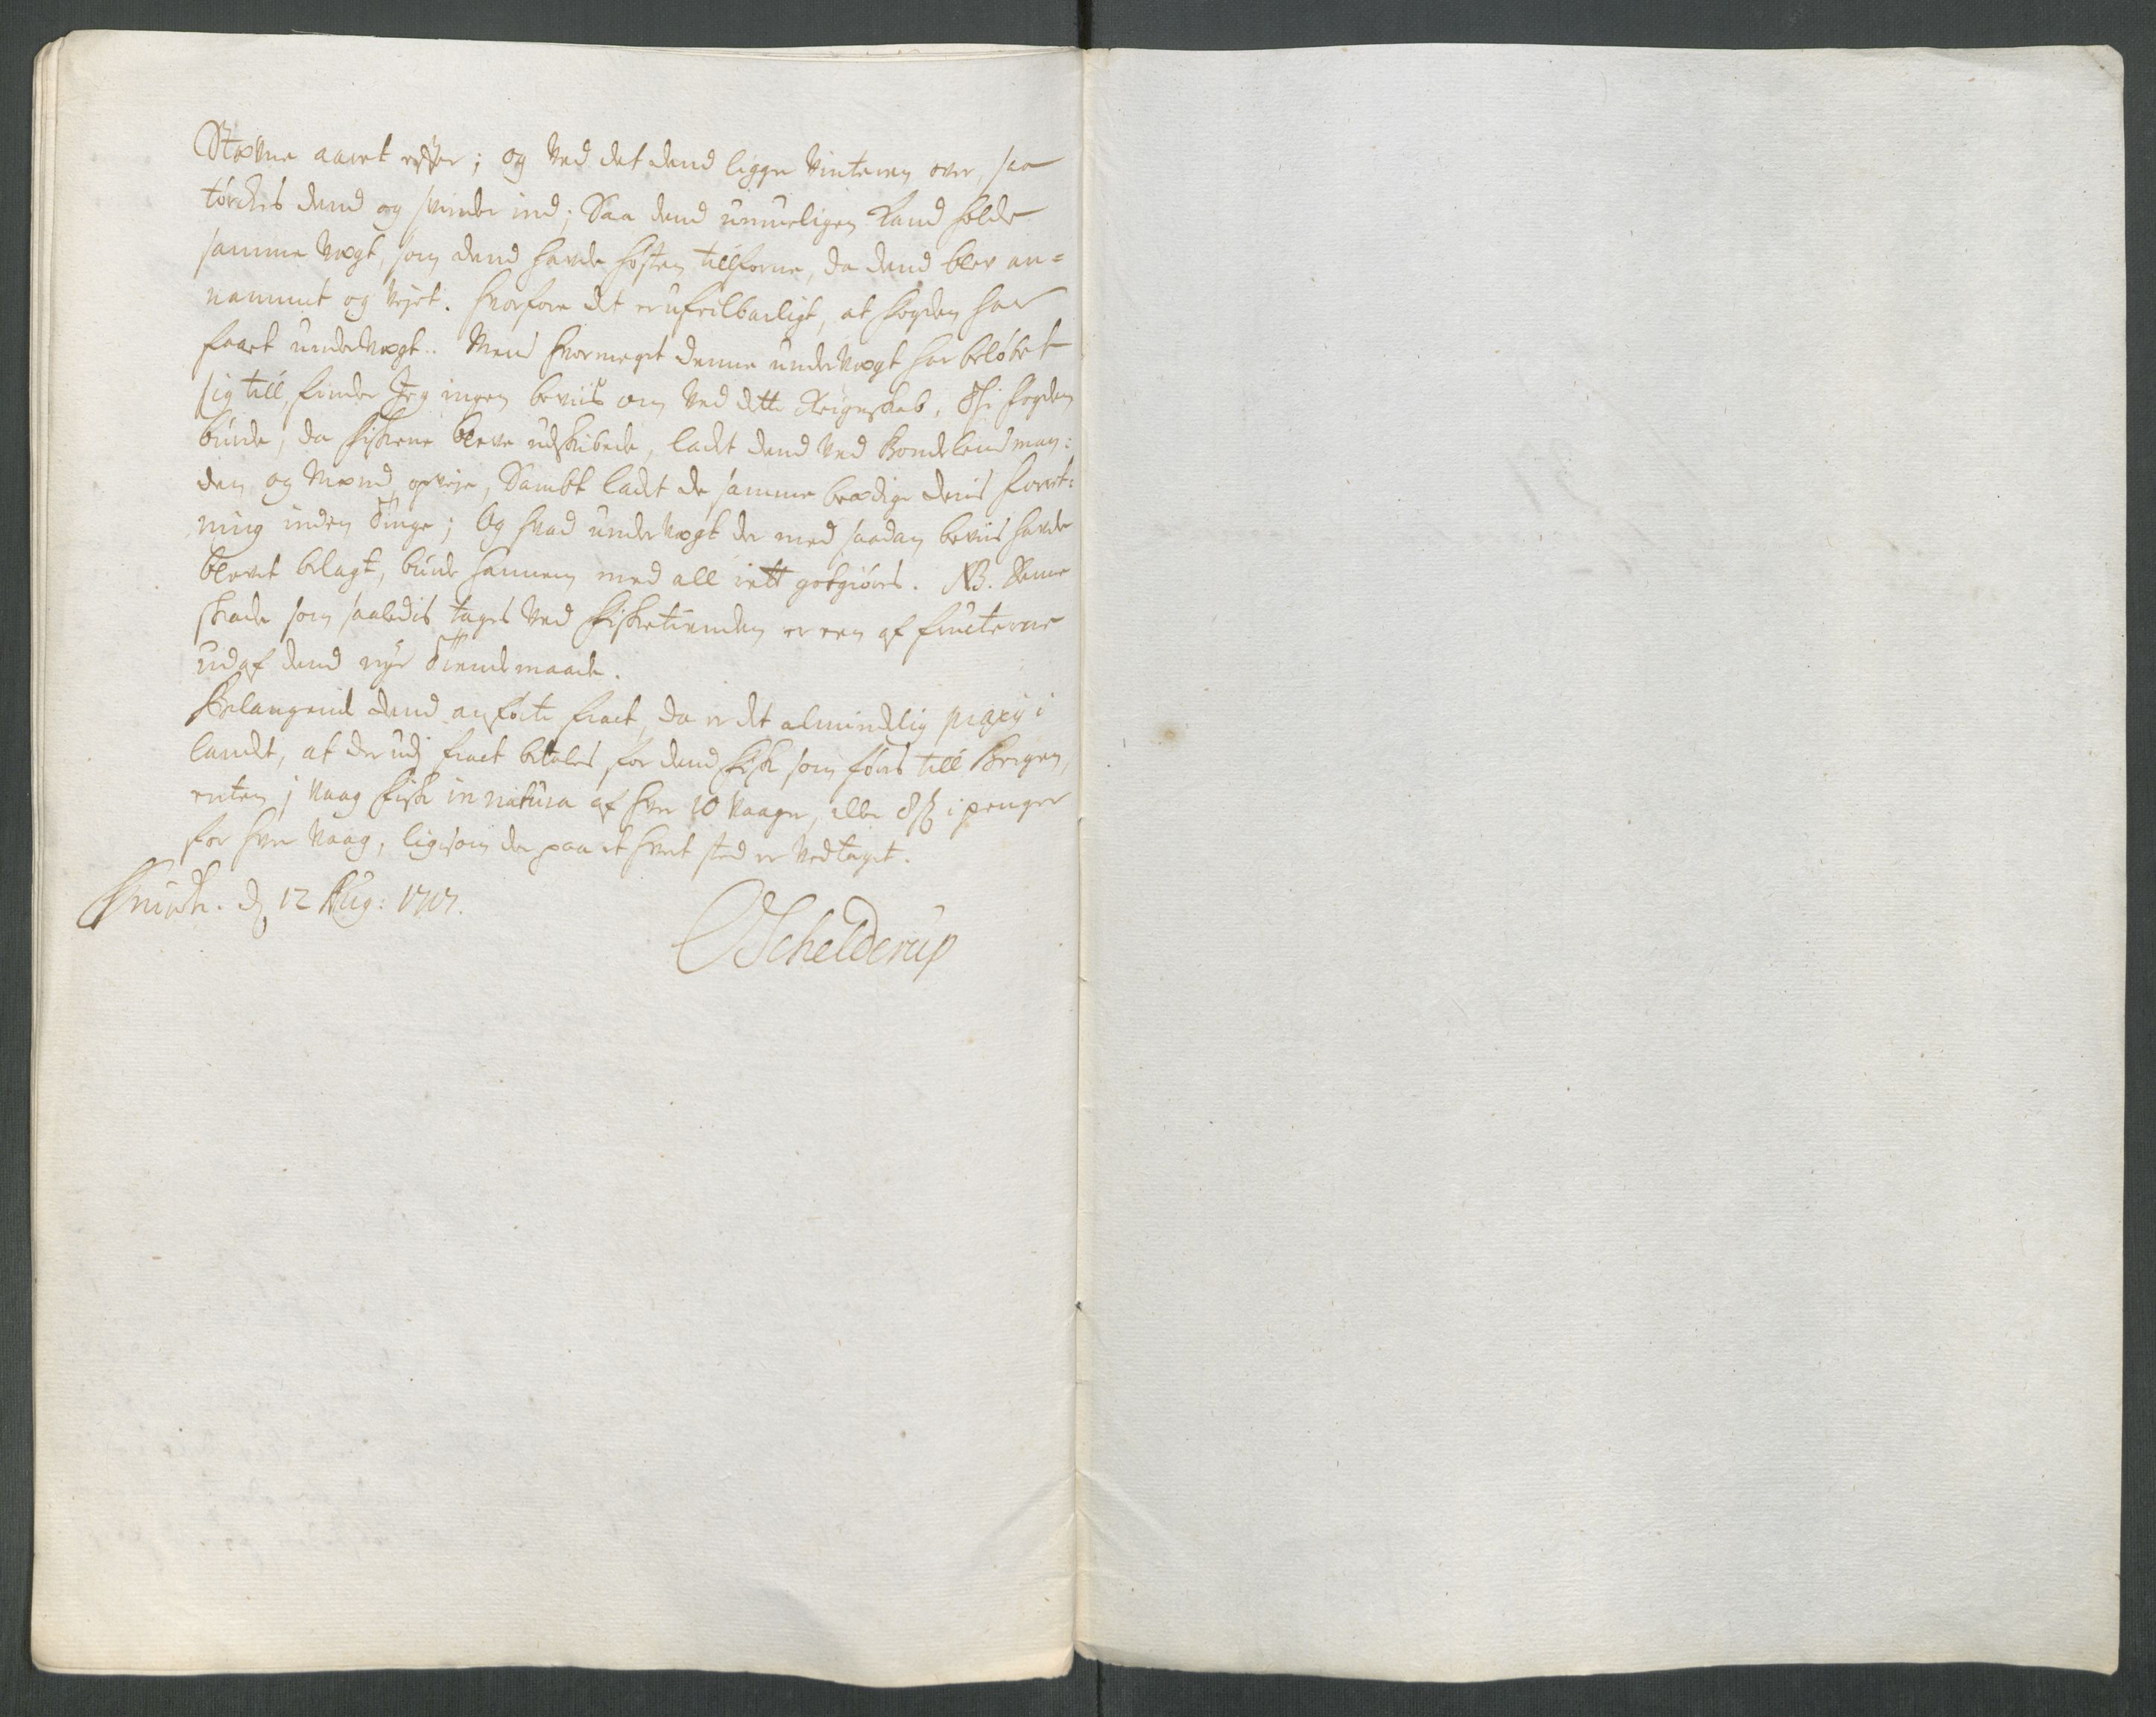 Stævne aaret effter; og ved det dend ligger Vinteren over, saa
törckes dend og svinder ind; Saa dend umueligen kand holde
samme Vægt, som dend hafde høsten tillforne, da dend blev an=
nammet og Vejet. hvorfore det er ufeilbarligt, at fogden har
faaet underVægt.. Mend hvormeget denne underVægt har beløbet
sig till, finder Jeg ingen beviis om ved dette Reignskab. Thi fogden
burde, da fiskene bleve udskibede, ladet dend ved Bondelensman:
den og Mænd opveje, Sambt ladet de samme beædige deris forret:
ning inden Tinge; Og hvad underVægt der med saadan beviis hafde
blevet belagt, burde hannem med all rett godgiöres. NB. Denne
skade som saaledis tages ved fisketienden er een af fructerne
udaf dend nye Tiendemaade.
Belangende dend anförte fract, da er det almindelig praxis i
landet, at der udj fract betales for dend fisk som föris till Bergen,
enten j Vaag fisk in natura af hver 10 Vaager, eller 8 ß i penger
for hver Vaag, ligesom der paa et hvert sted er vedtaget.
Trundh. d 12 Aug: 1717.
OSchelderup